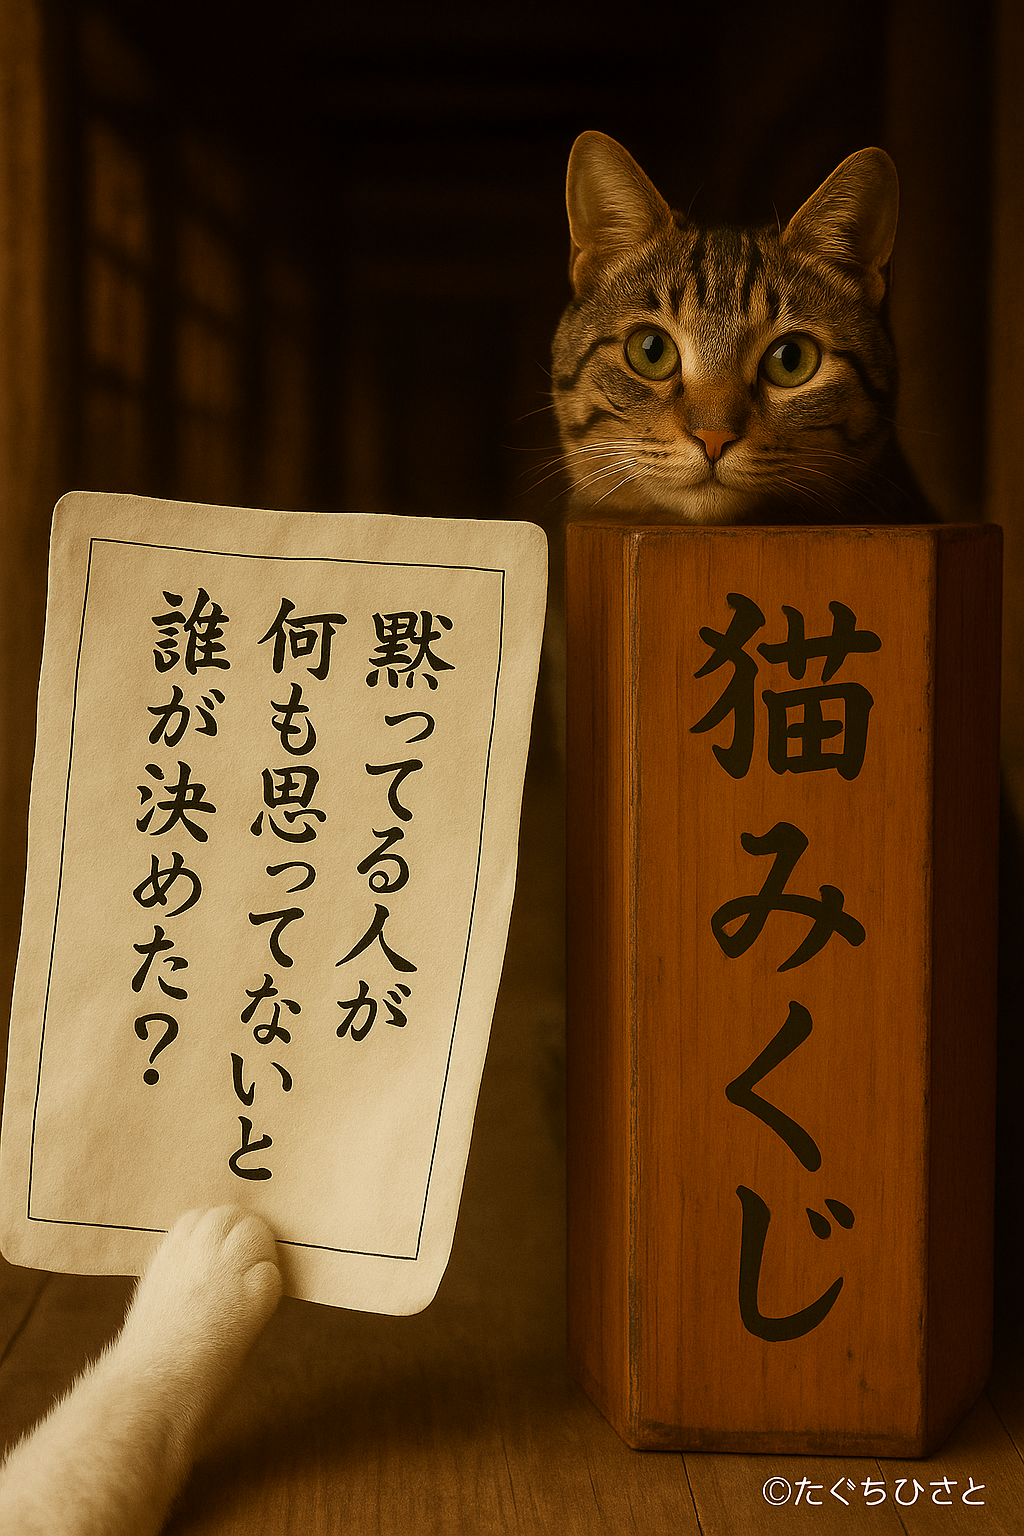 黙ってる人が
何も思ってないと
誰が決めた？
猫みくじ
©たぐちひさと